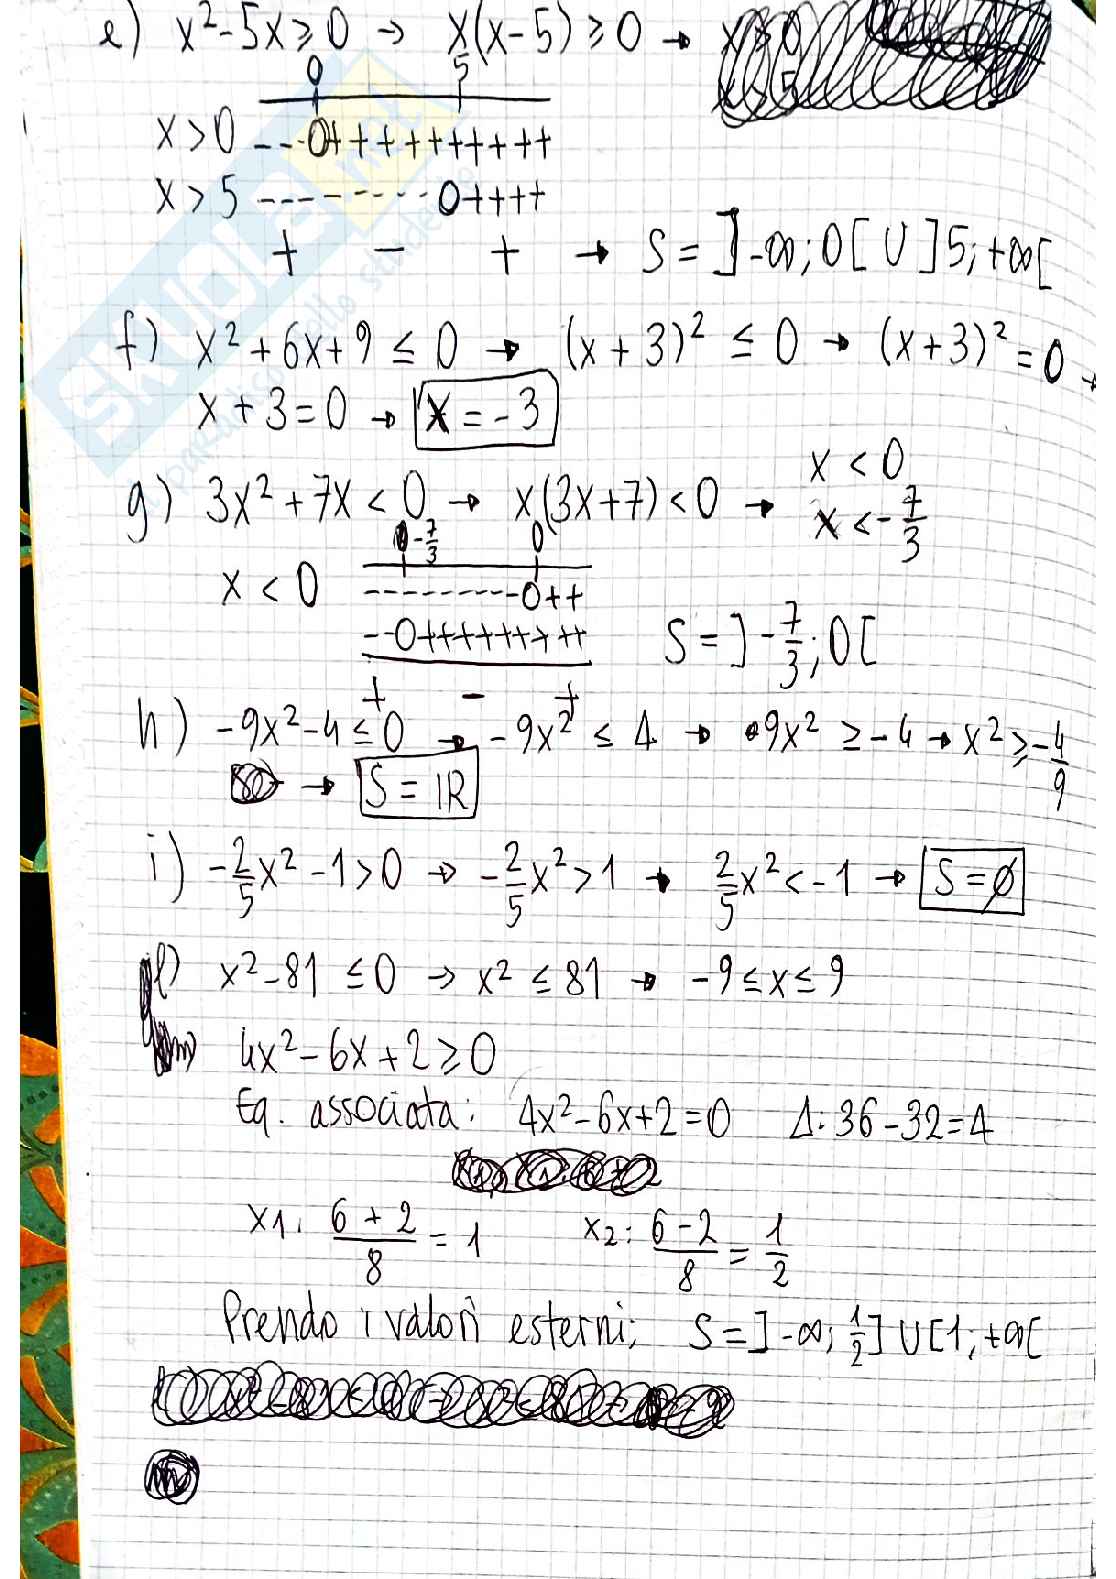 e) x²-5x≥0 → x(x-5)≥0 → x>0
5
0 5
x>0 ---0++++++++++
x>5 --------0++++
+ - + → S=]-∞;0[ U ]5;+∞[
f) x²+6x+9≤0 → (x+3)²≤0 → (x+3)²=0 →
x+3=0 → x=-3
g) 3x²+7x<0 → x(3x+7)<0 → x<0
x<-7/3
-7/3 0
x<0 ---------0++
--0++++++++++ S=]-7/3;0[
+ - +
h) -9x²-4≤0 → -9x²≤4 → 9x²≥-4 → x²≥-4/9
→ S=IR
i) -2/5x²-1>0 → -2/5x²>1 → 2/5x²<-1 → S=∅
l) x²-81≤0 → x²≤81 → -9≤x≤9
m) 4x²-6x+2≥0
Eq. associata: 4x²-6x+2=0 Δ: 36-32=4
x1: (6+2)/8=1 x2: (6-2)/8=1/2
Prendo i valori esterni: S=]-∞;1/2] U [1;+∞[
SKUOLA.net